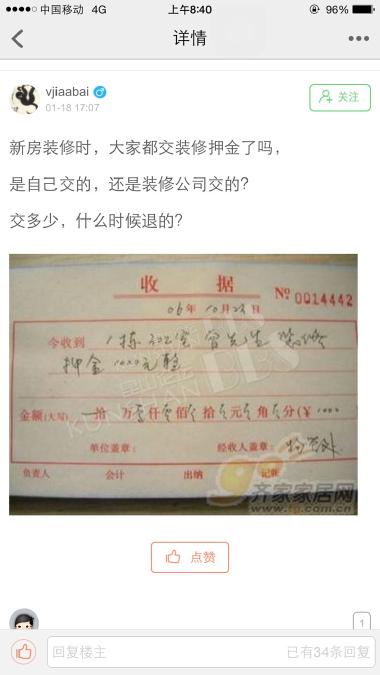 中国移动 4G
上午8:40
96%
详情
vjiaabai
01-18 17:07
关注
新房装修时，大家都交装修押金了吗，
是自己交的，还是装修公司交的？
交多少，什么时候退的？
收 据
06年10月23日
№ 0014442
今收到 1栋302室曾先生装修
押金1000元整
金额(大写) 拾 万 仟 佰 拾 元 角 分(￥1000
单位盖章：
经收人盖章：
负责人 会计 出纳 记账
KUNSHAN BBS
齐家家居网
www.tg.com.cn
点赞
1
回复楼主
已有34条回复